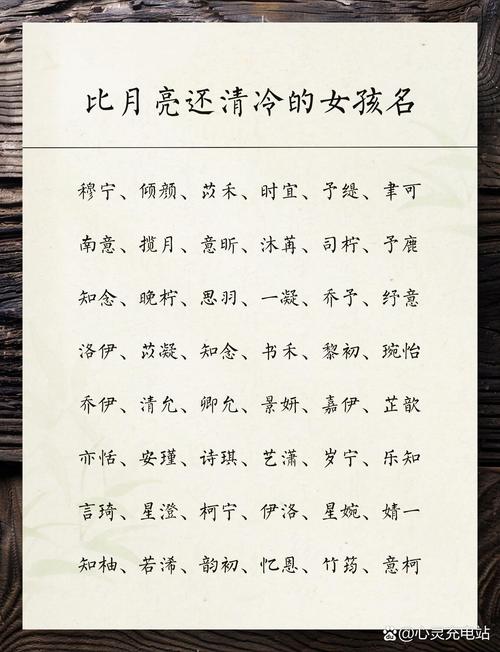 比月亮还清冷的女孩名
穆宁、倾颜、苡禾、时宜、予缇、聿可
南意、揽月、意昕、沐苒、司柠、予鹿
知念、晚柠、思羽、一凝、乔予、纾意
洛伊、苡凝、知念、书禾、黎初、琬怡
乔伊、清允、卿允、景妍、嘉伊、芷歆
亦恬、安瑾、诗琪、艺潇、岁宁、乐知
言琦、星澄、柯宁、伊洛、星婉、婧一
知柚、若浠、韵初、忆恩、竹筠、意柯
@心灵充电站